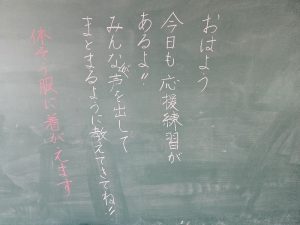 おはよう
今日も応援練習が
あるよ!!
みんなが声を出して
まとまるように教えてきてね!!
体そう服に着がえます